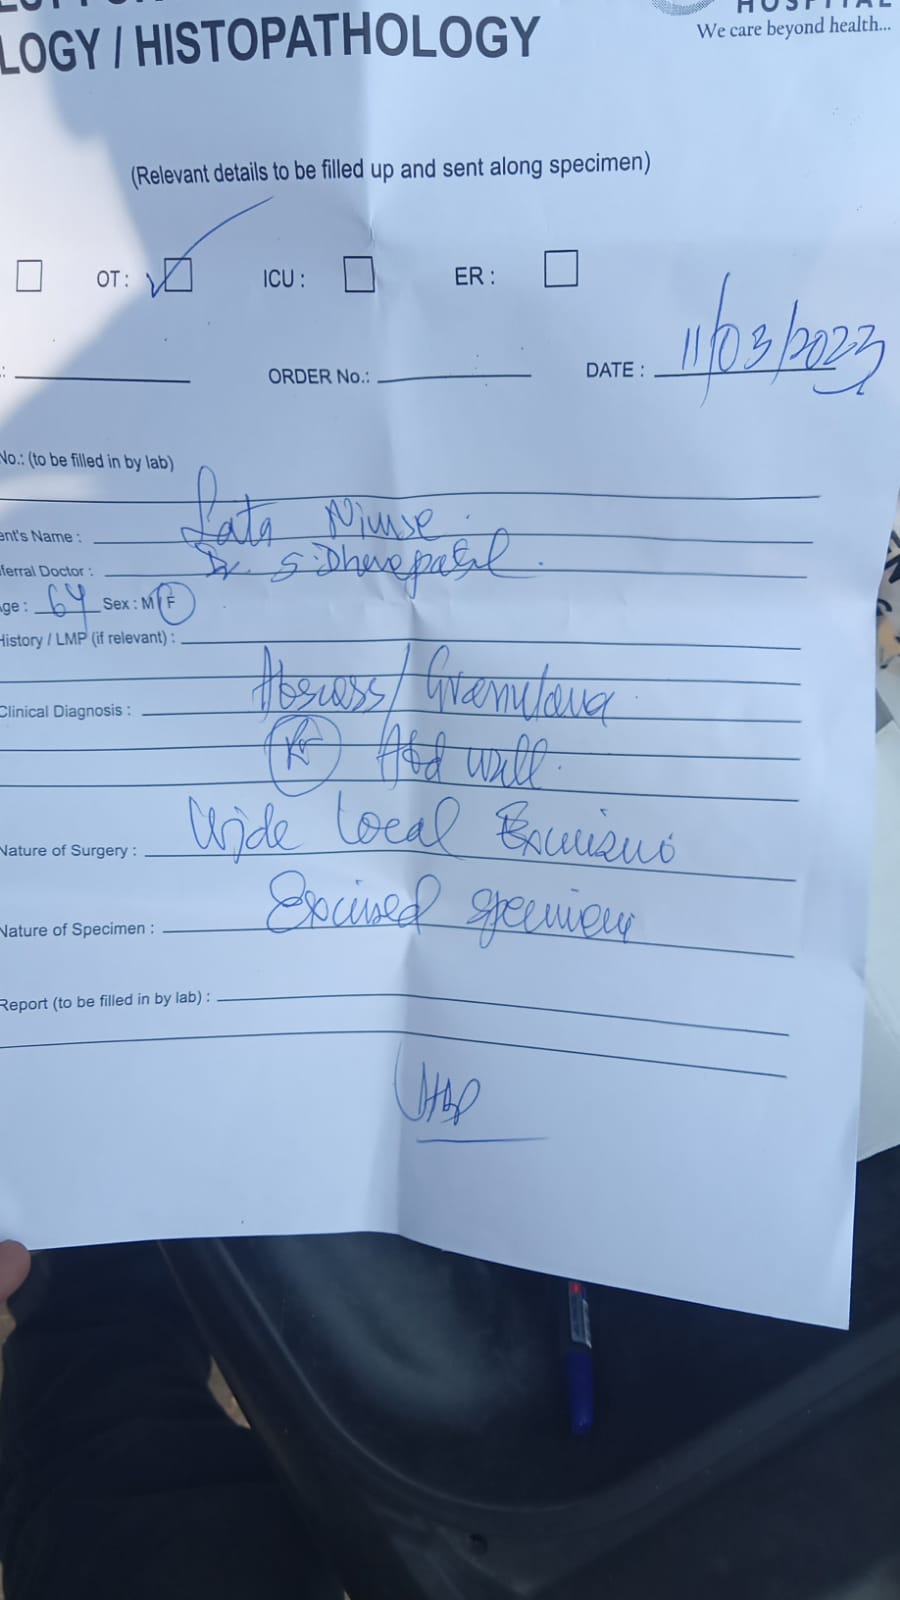 HOSPITAL
We care beyond health...
LOGY / HISTOPATHOLOGY
(Relevant details to be filled up and sent along specimen)
OT : ICU : ER :
: ORDER No.: DATE : 11/03/2023
No.: (to be filled in by lab)
ent's Name : Lata
ferral Doctor : Dr. S.
ge : 64 Sex : M / F
History / LMP (if relevant) :
Clinical Diagnosis : Abscess / Granuloma
Abd wall.
Nature of Surgery : Wide Local Excision
Nature of Specimen : Excised specimen
Report (to be filled in by lab) :